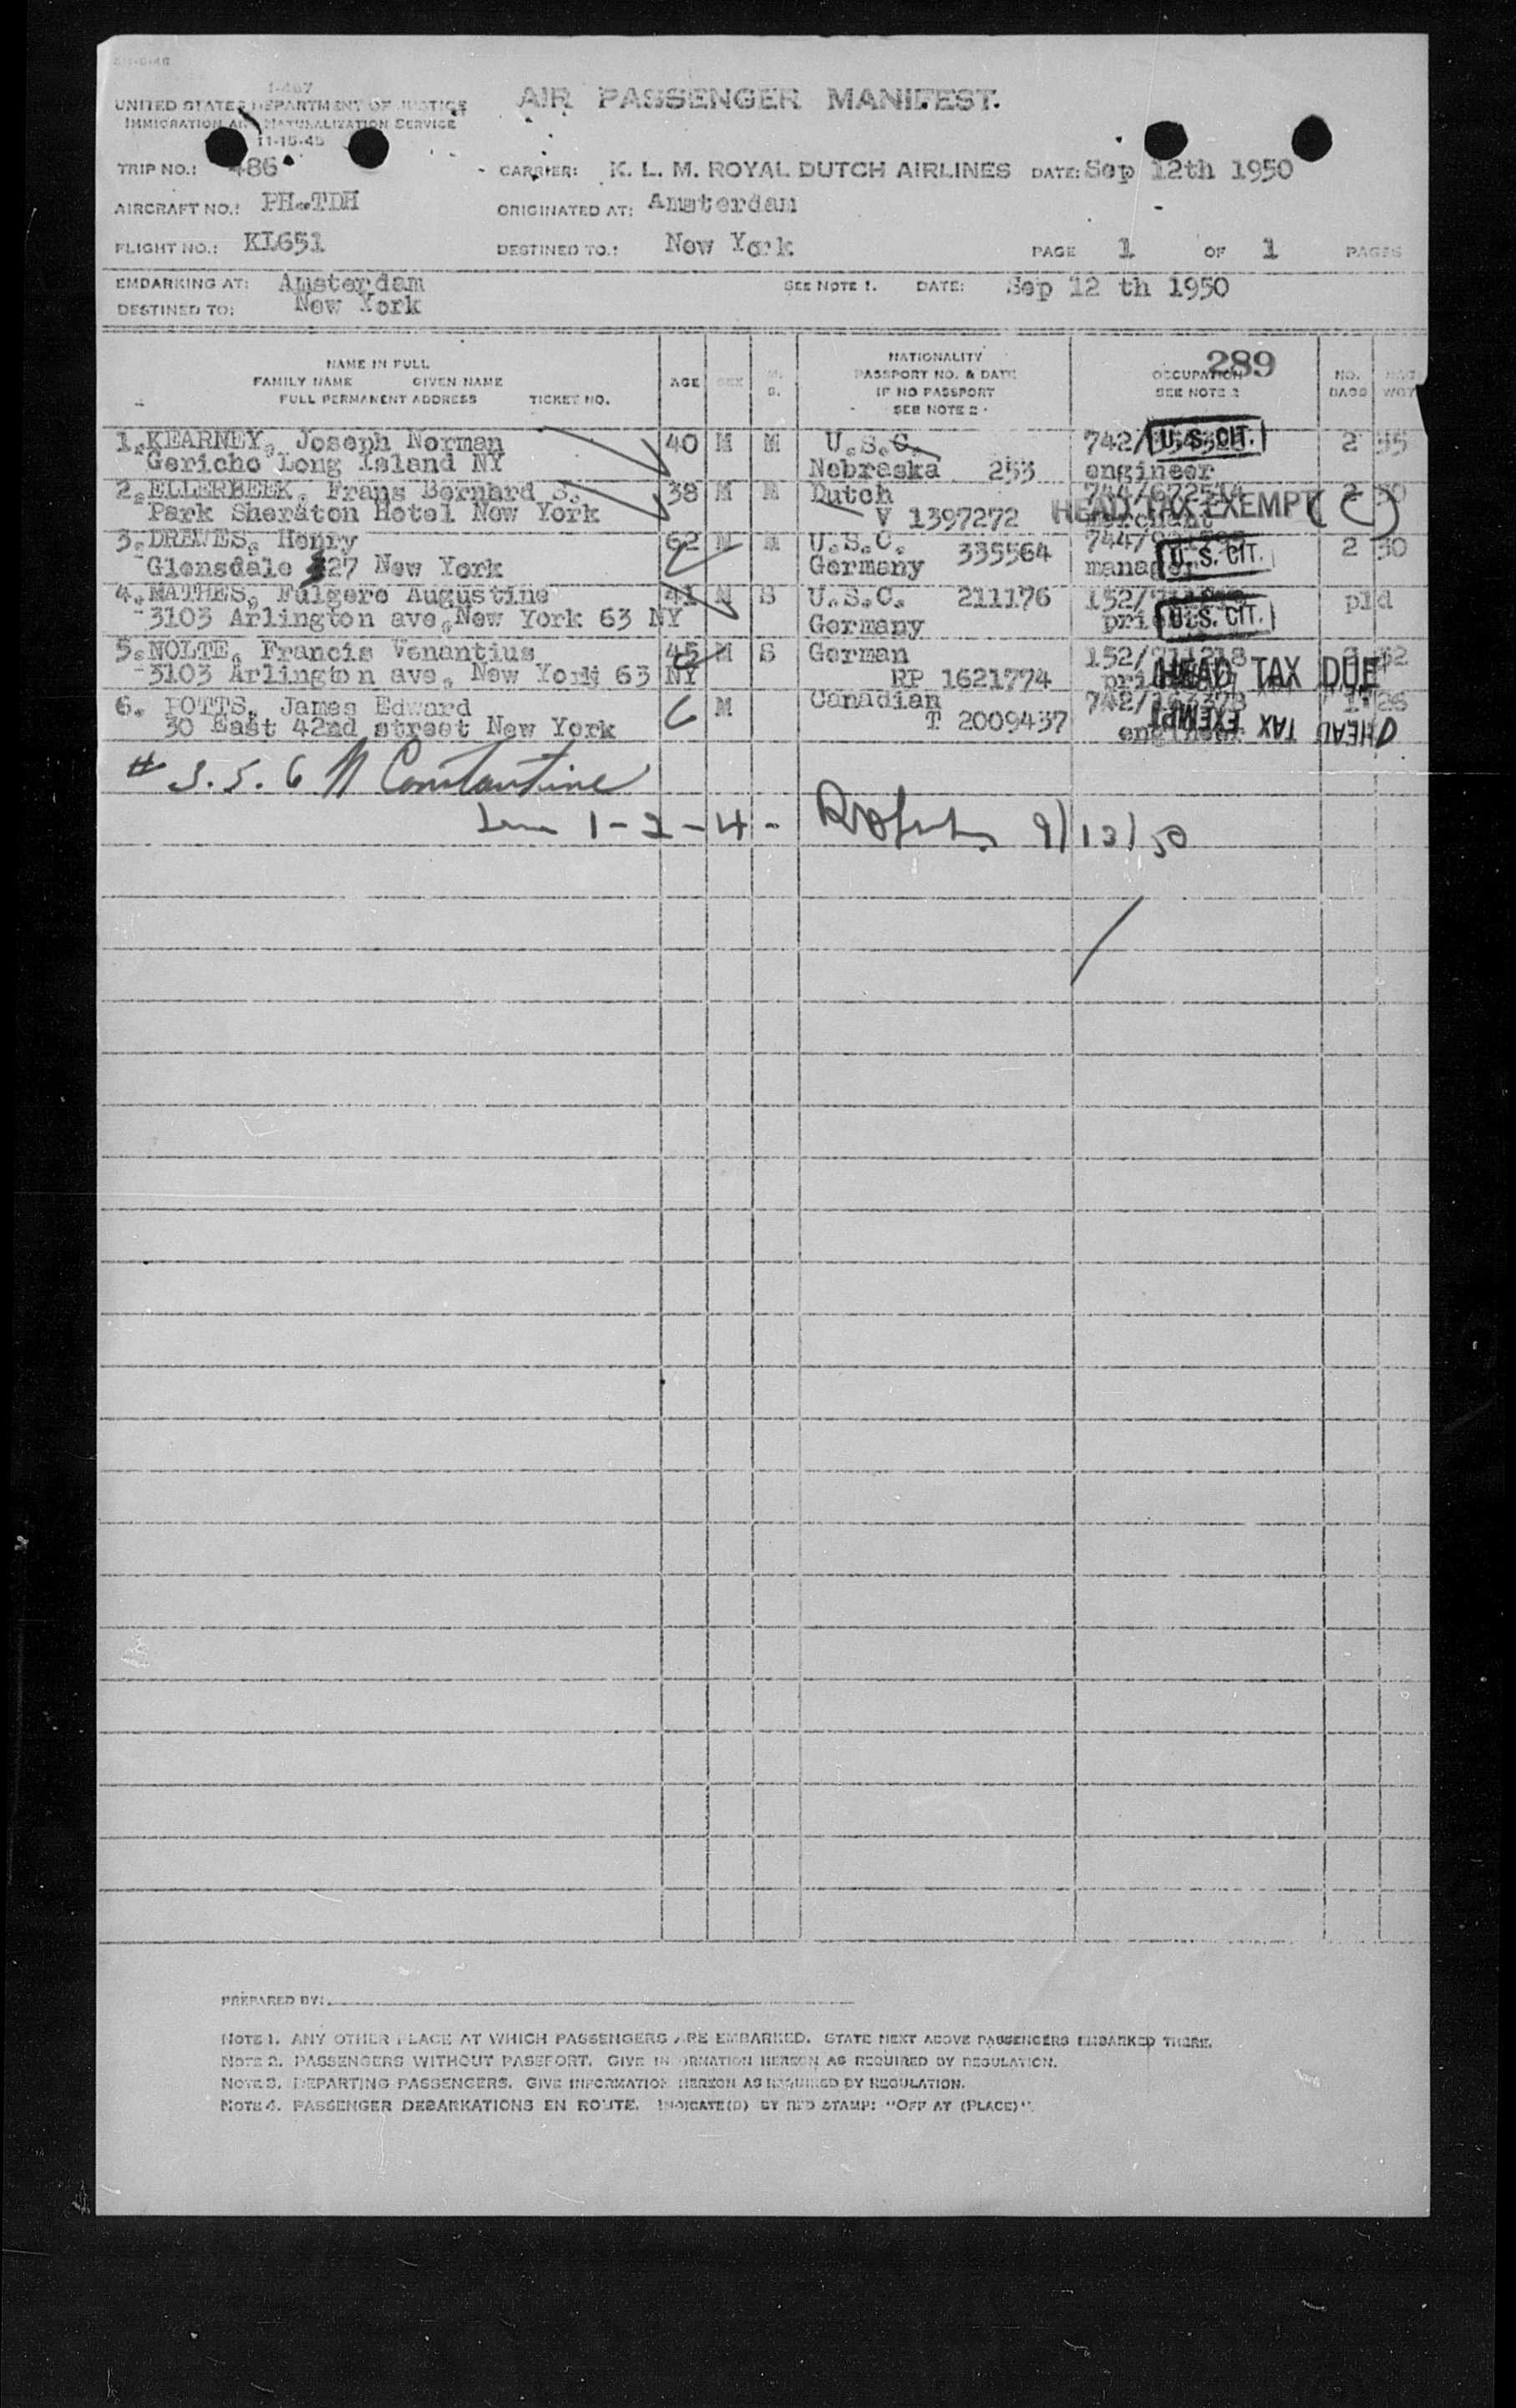 I-487
UNITED STATES DEPARTMENT OF JUSTICE
IMMIGRATION AND NATURALIZATION SERVICE
11-15-45
AIR PASSENGER MANIFEST.
TRIP NO.: 486
CARRIER: K. L. M. ROYAL DUTCH AIRLINES DATE: Sep 12th 1950
AIRCRAFT NO.: PH-TDH
ORIGINATED AT: Amsterdam
FLIGHT NO.: KL651
DESTINED TO.: New York
PAGE 1 OF 1 PAGES
EMBARKING AT: Amsterdam
SEE NOTE 1. DATE: Sep 12 th 1950
DESTINED TO: New York
289
NAME IN FULL
FAMILY NAME GIVEN NAME
FULL PERMANENT ADDRESS TICKET NO.
AGE SEX M. S.
NATIONALITY
PASSPORT NO. & DATE
IF NO PASSPORT
SEE NOTE 2
OCCUPATION
SEE NOTE 2
NO. BAGS
WGT
1. KEARNEY, Joseph Norman 40 M M U.S.C. 742/ U.S. CIT. 2 55
Gericho Long Island NY Nebraska 253 engineer
2. ELLERBEEK, Frans Bernard S. 38 M M Dutch 2 30
Park Sheraton Hotel New York V 1397272 merchant HEAD TAX EXEMPT
3. DREWES, Henry 62 M M U.S.C. 335564 744/ 2 30
Glensdale 27 New York Germany manager U.S. CIT.
4. MATHES, Fulgere Augustine 41 M S U.S.C. 211176 152/ pld
3103 Arlington ave, New York 63 NY Germany priest U.S. CIT.
5. NOLTE, Francis Venantius 45 M S German 152/
3103 Arlington ave, New York 63 NY RP 1621774 HEAD TAX DUE
6. POTTS, James Edward M Canadian 742/ 1 26
30 East 42nd street New York T 2009437 engineer HEAD TAX EXEMPT
# 3. 5. 6 N Constantine
1 - 2 - 4 - 9/13/50
PREPARED BY:
NOTE 1. ANY OTHER PLACE AT WHICH PASSENGERS ARE EMBARKED. STATE NEXT ABOVE PASSENGERS EMBARKED THERE.
NOTE 2. PASSENGERS WITHOUT PASSPORT. GIVE INFORMATION HEREON AS REQUIRED BY REGULATION.
NOTE 3. DEPARTING PASSENGERS. GIVE INFORMATION HEREON AS REQUIRED BY REGULATION.
NOTE 4. PASSENGER DEBARKATIONS EN ROUTE. INDICATE(D) BY RED STAMP: "OFF AT (PLACE)".